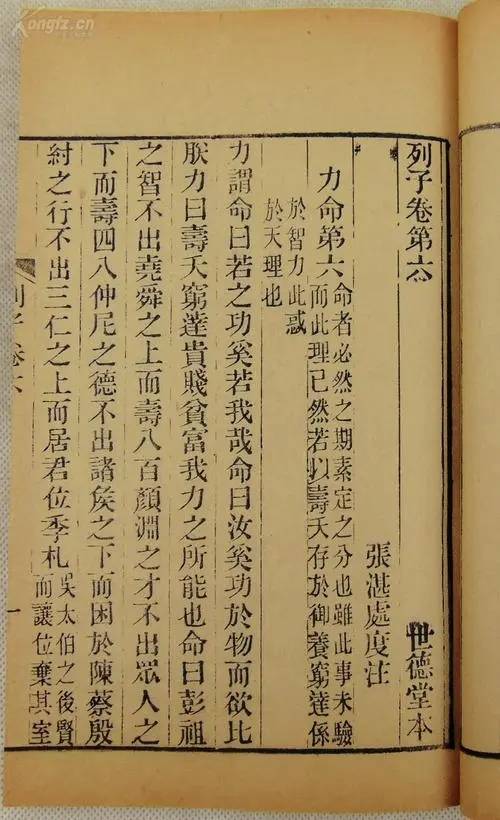 列子卷第六 世德堂本
張湛處度注
力命第六 命者必然之期素定之分也雖此事未驗
而此理已然若以壽夭存於御養窮達係
於智力此惑
於天理也
力謂命曰若之功奚若我哉命曰汝奚功於物而欲比
朕力曰壽夭窮達貴賤貧富我力之所能也命曰彭祖
之智不出堯舜之上而壽八百顏淵之才不出眾人之
下而壽四八仲尼之德不出諸矦之下而困於陳蔡殷
紂之行不出三仁之上而居君位季札 吳太伯之後賢
而讓位棄其室
列子卷六 一
Kongfz.cn